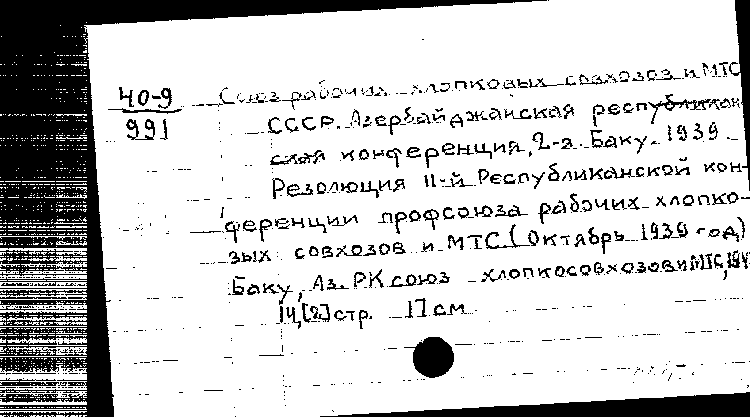 40-9
991
Союз рабочих хлопковых совхозов и МТС
СССР. Азербайджанская республикан
ская конференция, 2-я. Баку. 1939.
Резолюция II-й Республиканской кон-
ференции профсоюза рабочих хлопко-
вых совхозов и МТС (Октябрь 1939 год)
Баку, Аз. РК союз хлопкосовхозов и МТС,
14,[2] стр. 17 см